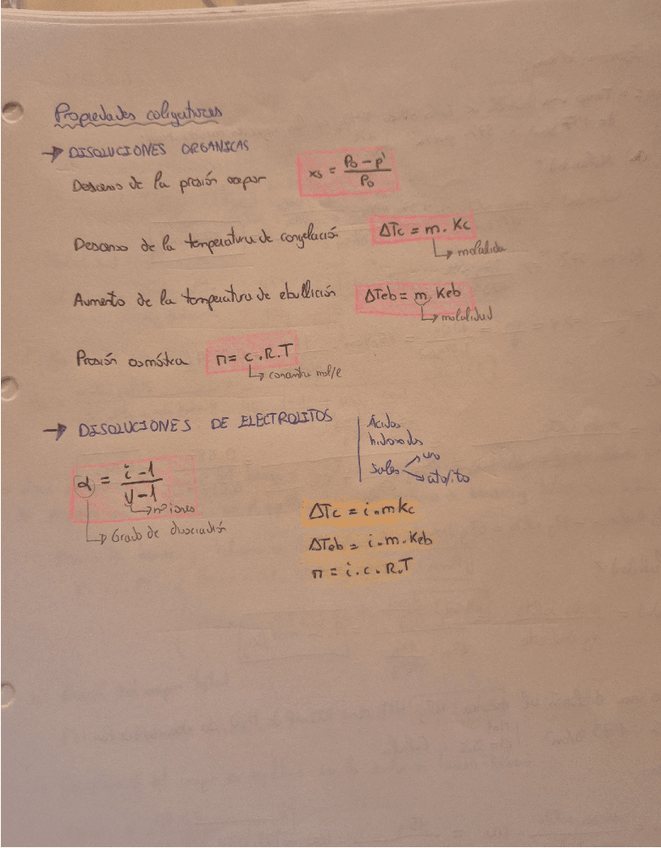 Propiedades coligativas
→ DISOLUCIONES ORGANICAS
Descenso de la presión vapor xs = P0 - p' / P0
Descenso de la temperatura de congelación ΔTc = m. Kc
↳ molalidad
Aumento de la temperatura de ebullición ΔTeb = m. Keb
↳ molalidad
Presión osmótica π = c.R.T
↳ mol/l
→ DISOLUCIONES DE ELECTROLITOS
Ácidos
hidroxidos
Sales
α = i-1 / ν-1
↳ nº iones
↳ Grado de disociación
ΔTc = i.m Kc
ΔTeb = i.m.Keb
π = i.c.R.T